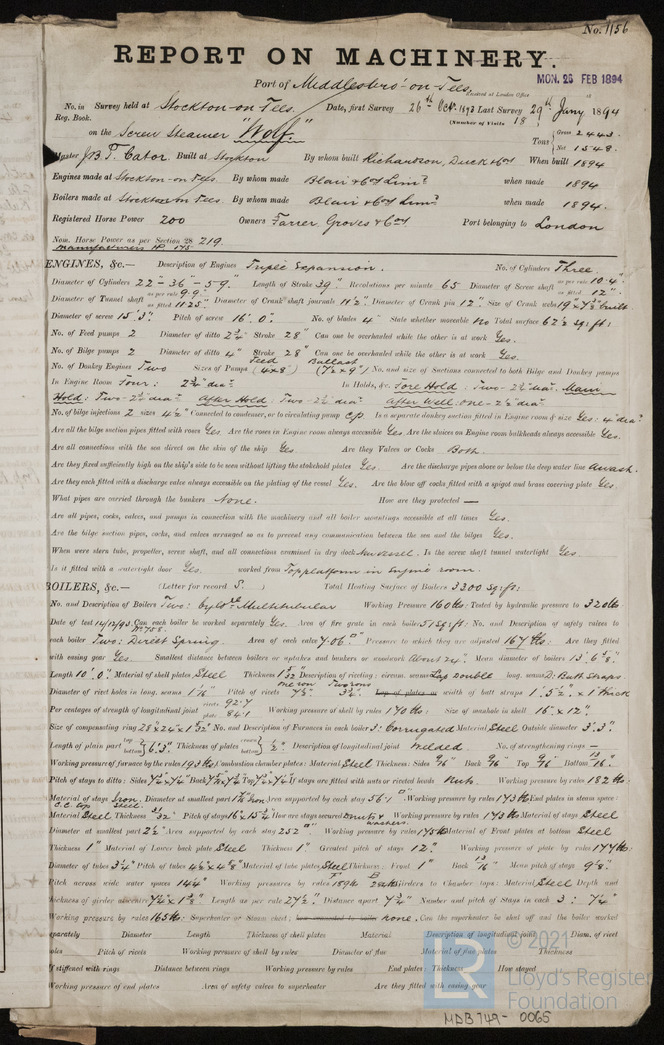 No. 1156
REPORT ON MACHINERY.
Port of Middlesbro'-on-Tees
Received at London Office MON. 26 FEB 1894
No. in Survey held at Stockton-on-Tees Date, first Survey 26th Oct. 1893 Last Survey 29th Jany 1894
Reg. Book. (Number of Visits 18
on the Screw Steamer "Wolf" Tons Gross 2443. Net 1548.
Master J.B.T. Cator. Built at Stockton By whom built Richardson, Duck & Coy When built 1894
Engines made at Stockton-on-Tees. By whom made Blair & Coy Limd when made 1894
Boilers made at Stockton on Tees. By whom made Blair & Coy Limd when made 1894.
Registered Horse Power 200 Owners Farrer Groves & Coy Port belonging to London
Nom. Horse Power as per Section 28 219.
ENGINES, &c.— Description of Engines Triple Expansion. No. of Cylinders Three
Diameter of Cylinders 22-36-59" Length of Stroke 39" Revolutions per minute 65 Diameter of Screw shaft as per rule 10.4" as fitted 12"
Diameter of Tunnel shaft as per rule 9.9" as fitted 11.25" Diameter of Crank shaft journals 11½" Diameter of Crank pin 12" Size of Crank webs 19"x7½" built
Diameter of screw 15'3" Pitch of screw 16'.0" No. of blades 4 State whether moveable No Total surface 62½ sq: ft:
No. of Feed pumps 2 Diameter of ditto 2¾" Stroke 28" Can one be overhauled while the other is at work Yes.
No. of Bilge pumps 2 Diameter of ditto 4" Stroke 28" Can one be overhauled while the other is at work Yes.
No. of Donkey Engines Two Sizes of Pumps Feed (4x8") Ballast (7½x9") No. and size of Suctions connected to both Bilge and Donkey pumps
In Engine Room Four: 2¾" dia: In Holds, &c. Fore Hold: Two-2½" dia: Main
Hold: Two-2½" dia: After Hold: Two-2½" dia: After Well: one-2½" dia:
No. of bilge injections 2 sizes 4½" Connected to condenser, or to circulating pump C.P. Is a separate donkey suction fitted in Engine room & size Yes: 4" dia:
Are all the bilge suction pipes fitted with roses Yes. Are the roses in Engine room always accessible Yes. Are the sluices on Engine room bulkheads always accessible Yes.
Are all connections with the sea direct on the skin of the ship Yes. Are they Valves or Cocks Both.
Are they fixed sufficiently high on the ship's side to be seen without lifting the stokehold plates Yes. Are the discharge pipes above or below the deep water line Awash.
Are they each fitted with a discharge valve always accessible on the plating of the vessel Yes. Are the blow off cocks fitted with a spigot and brass covering plate Yes.
What pipes are carried through the bunkers None. How are they protected —
Are all pipes, cocks, valves, and pumps in connection with the machinery and all boiler mountings accessible at all times Yes.
Are the bilge suction pipes, cocks, and valves arranged so as to prevent any communication between the sea and the bilges Yes.
When were stern tube, propeller, screw shaft, and all connections examined in dry dock New vessel. Is the screw shaft tunnel watertight Yes.
Is it fitted with a watertight door Yes. worked from Top platform in Engine room.
BOILERS, &c.— (Letter for record S.) Total Heating Surface of Boilers 3300 sq: ft:
No. and Description of Boilers Two: Multitubular Working Pressure 160 lbs: Tested by hydraulic pressure to 320 lbs
Date of test 14/12/93 Can each boiler be worked separately Yes. Area of fire grate in each boiler 51 sq: ft: No. and Description of safety valves to
each boiler Two: Direct Spring. Area of each valve 7.06" Pressure to which they are adjusted 167 lbs: Are they fitted
with easing gear Yes. Smallest distance between boilers or uptakes and bunkers or woodwork about 24". Mean diameter of boilers 13'.6⅝"
Length 10'.0" Material of shell plates Steel Thickness 1 5/32" Description of riveting: circum. seams Lap double long. seams D: Butt straps.
Diameter of rivet holes in long. seams 1 1/16" Pitch of rivets width of butt straps 1'.5½" x 1" thick
Per centages of strength of longitudinal joint rivets 92.7 plate 84.1 Working pressure of shell by rules 170 lbs: Size of manhole in shell 16"x12".
Size of compensating ring 28"x24"x1 5/32" No. and Description of Furnaces in each boiler 3: Corrugated Material Steel Outside diameter 3'.3".
Length of plain part top bottom 6'.3" Thickness of plates crown bottom ½" Description of longitudinal joint Welded. No. of strengthening rings —
Working pressure of furnace by the rules 193 lbs Combustion chamber plates: Material Steel Thickness: Sides 9/16" Back 9/16" Top 9/16" Bottom 15/16".
Pitch of stays to ditto: Sides Back Top If stays are fitted with nuts or riveted heads Nuts. Working pressure by rules 182 lbs:
Material of stays Iron. Diameter at smallest part Area supported by each stay 56.1" Working pressure by rules 173 lbs End plates in steam space:
Material Steel Thickness Pitch of stays 16"x15¾" How are stays secured D nuts & washers. Working pressure by rules 173 lbs Material of stays Steel
Diameter at smallest part 2½" Area supported by each stay 252" Working pressure by rules 175 lbs Material of Front plates at bottom Steel
Thickness 1" Material of Lower back plate Steel Thickness 1" Greatest pitch of stays 12." Working pressure of plate by rules 177 lbs:
Diameter of tubes 3¼" Pitch of tubes 4½"x4⅝" Material of tube plates Steel Thickness: Front 1" Back 13/16" Mean pitch of stays 9⅛".
Pitch across wide water spaces 14¼" Working pressures by rules Girders to Chamber tops: Material Steel Depth and
thickness of girder at centre 7¼x1⅝" Length as per rule 27½" Distance apart 7¾" Number and pitch of Stays in each 3: 7¼"
Working pressure by rules 165 lbs: Superheater or Steam chest; how connected to boiler none. Can the superheater be shut off and the boiler worked
separately Diameter Length Thickness of shell plates Material Description of longitudinal joint Diam. of rivet
holes Pitch of rivets Working pressure of shell by rules Diameter of flue Material of flue plates Thickness
If stiffened with rings Distance between rings Working pressure by rules End plates: Thickness How stayed
Working pressure of end plates Area of safety valves to superheater Are they fitted with easing gear
© 2021
Lloyd's Register
Foundation
LR
MDB749-0065